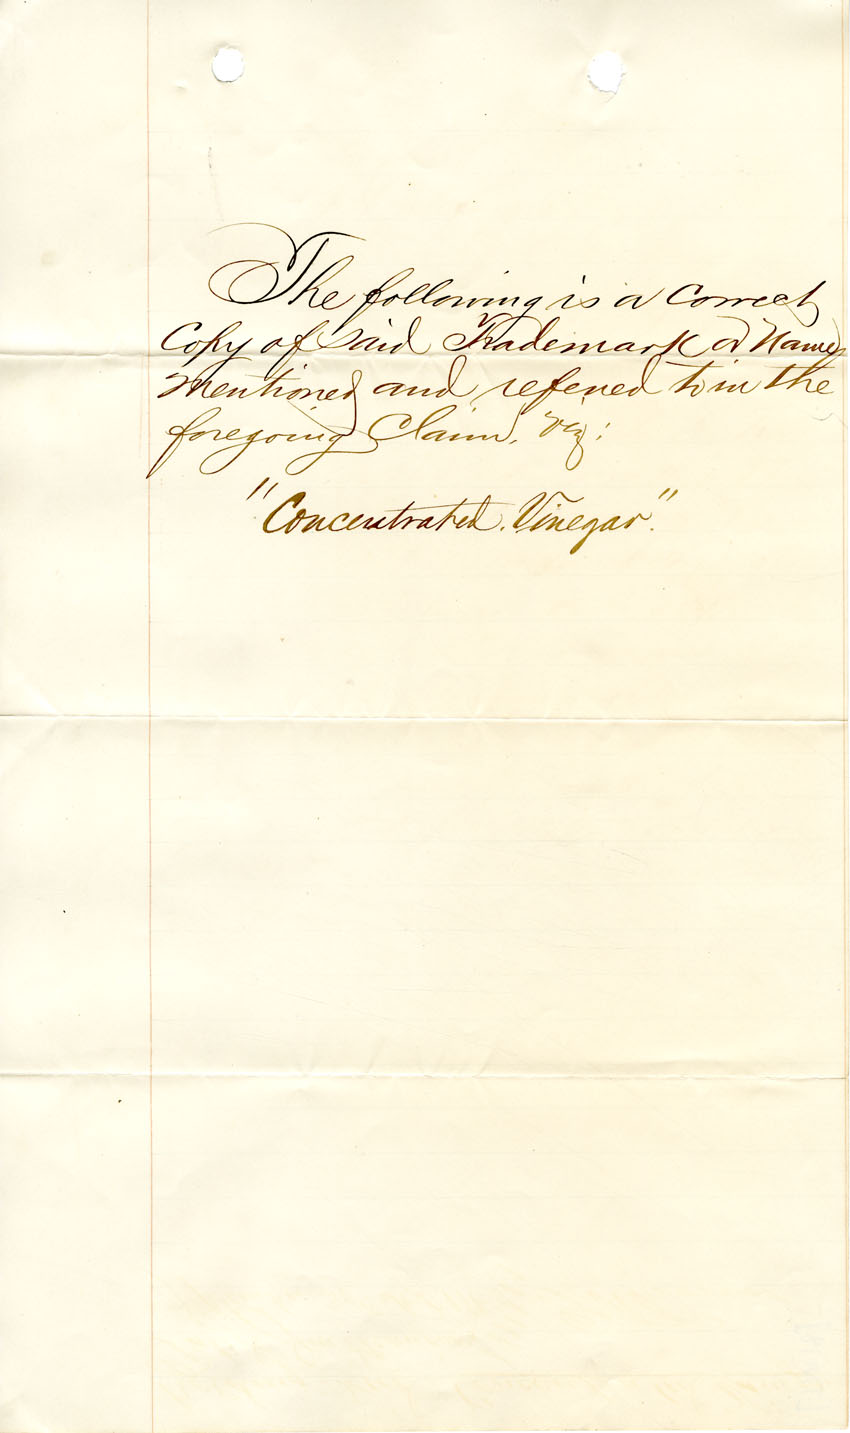 The following is a correct
Copy of said Trademark or Name
mentioned and refered to in the
foregoing Claim, viz:
"Concentrated. Vinegar".